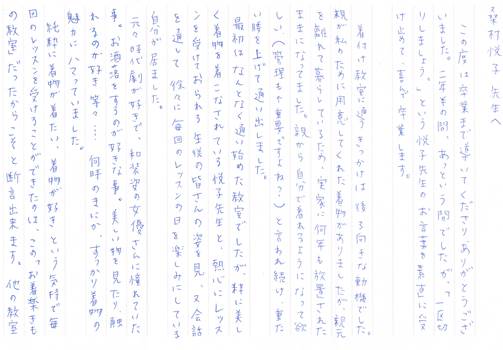 栄村悦子 先生へ
この度は卒業まで導いてくださりありがとうござ
いました。二年半の間、あっという間でしたが、"一区切
りしましょう。"という悦子先生のお言葉を素直に受
け止めて、喜んで卒業します。
着付け教室に通うきっかけは後ろ向きな動機でした。
親が私のために用意してくれた着物がありましたが、親元
を離れて暮らしているため、実家に何年も放置された
ままになってました。親から自分で着れるようになって欲
しい（管理も重要ですよね？）と言われ続け、重た
い腰を上げて通い出しました。
最初はなんとなく通い始めた教室でしたが、粋に美し
く着物を着こなされている悦子先生と、熱心にレッス
ンを受けておられる生徒の皆さんの姿を見、又会話
を通して徐々に毎回のレッスンの日を楽しみにしている
自分が居ました。
元々時代劇が好きで、和装姿の女優さんに憧れていた
事。お洒落をするのが好きな事。美しい物を見たり、触
れるのが好き等々…。何時のまにか、すっかり着物の
魅力にハマっていました。
純粋に着物が着たい、着物が好きという気持で毎
回のレッスンを受けることができたのは、この"お着楽きも
の教室"だったからこそと断言出来ます。他の教室